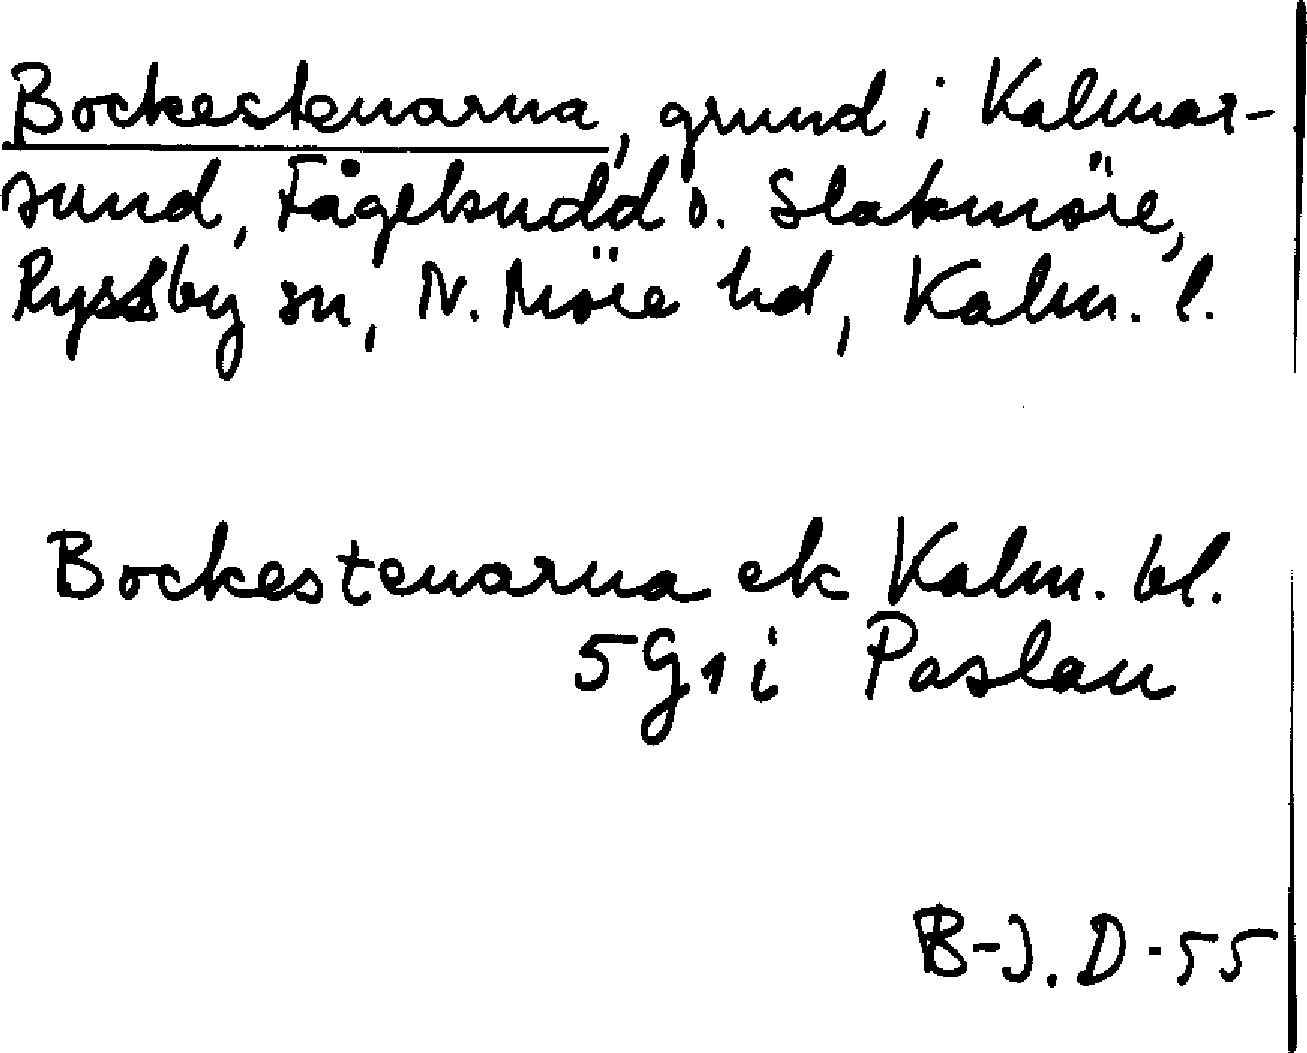 Bockestenarna, grund i Kalmar-
sund, Fågelsudd o. Slakmöre,
Ryssby sn, N. Möre hd, Kalm. l.
Bockestenarna ek Kalm. bl.
5 G 1 i Paslau
B-J. D -55